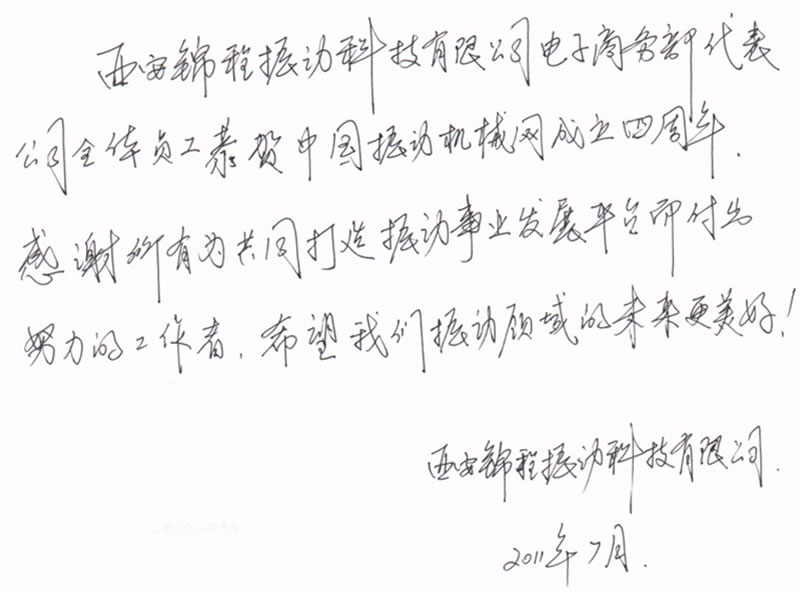 西安锦程振动科技有限公司电子商务部代表
公司全体员工恭贺中国振动机械网成立四周年.
感谢所有为共同打造振动事业发展平台所付出
努力的工作者.希望我们振动领域的未来更美好!
西安锦程振动科技有限公司.
2011年7月.